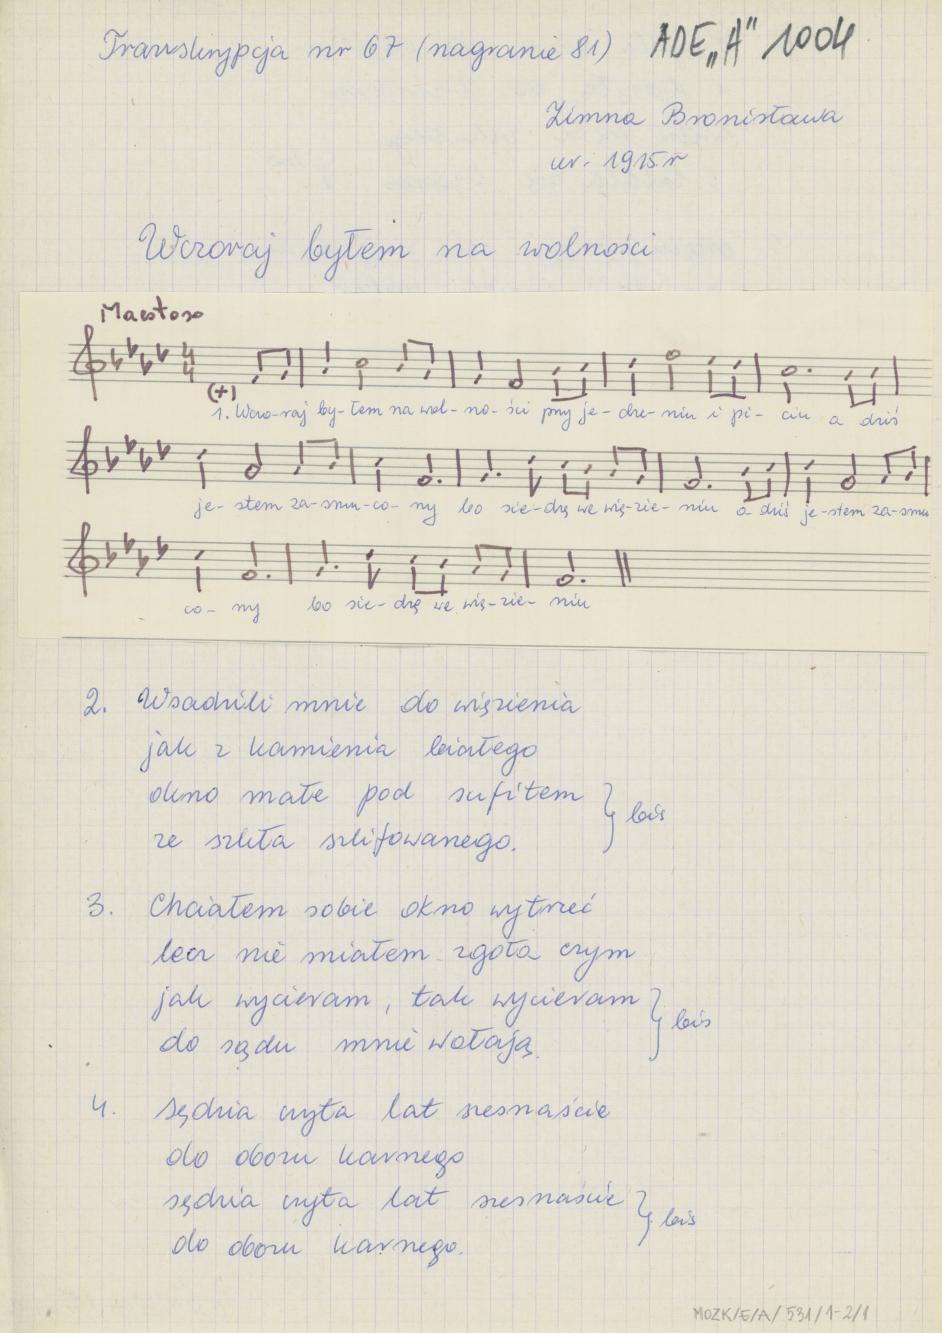 Transkrypcja nr 67 (nagranie 81) ADE „A" 1004
Zimna Bronisława
ur. 1915 r
Wczoraj byłem na wolności
Maestoso
4/4
(+)
1. Wczo-raj by-łem na wol-no-ści przy je-dze-niu i pi-ciu a dziś
je-stem za-smu-co-ny bo sie-dzę we wię-zie-niu a dziś je-stem za-smu
co-ny bo sie-dzę we wię-zie-niu
2. Wsadzili mnie do więzienia
jak z kamienia białego
okno małe pod sufitem
ze szkła szlifowanego. } bis
3. Chciałem sobie okno wytrzeć
lecz nie miałem zgoła czym
jak wycieram, tak wycieram
do sądu mnie wołają. } bis
4. Sędzia czyta lat szesnaście
do obozu karnego
sędzia czyta lat szesnaście
do obozu karnego. } bis
MOZK/E/A/531/1-2/1